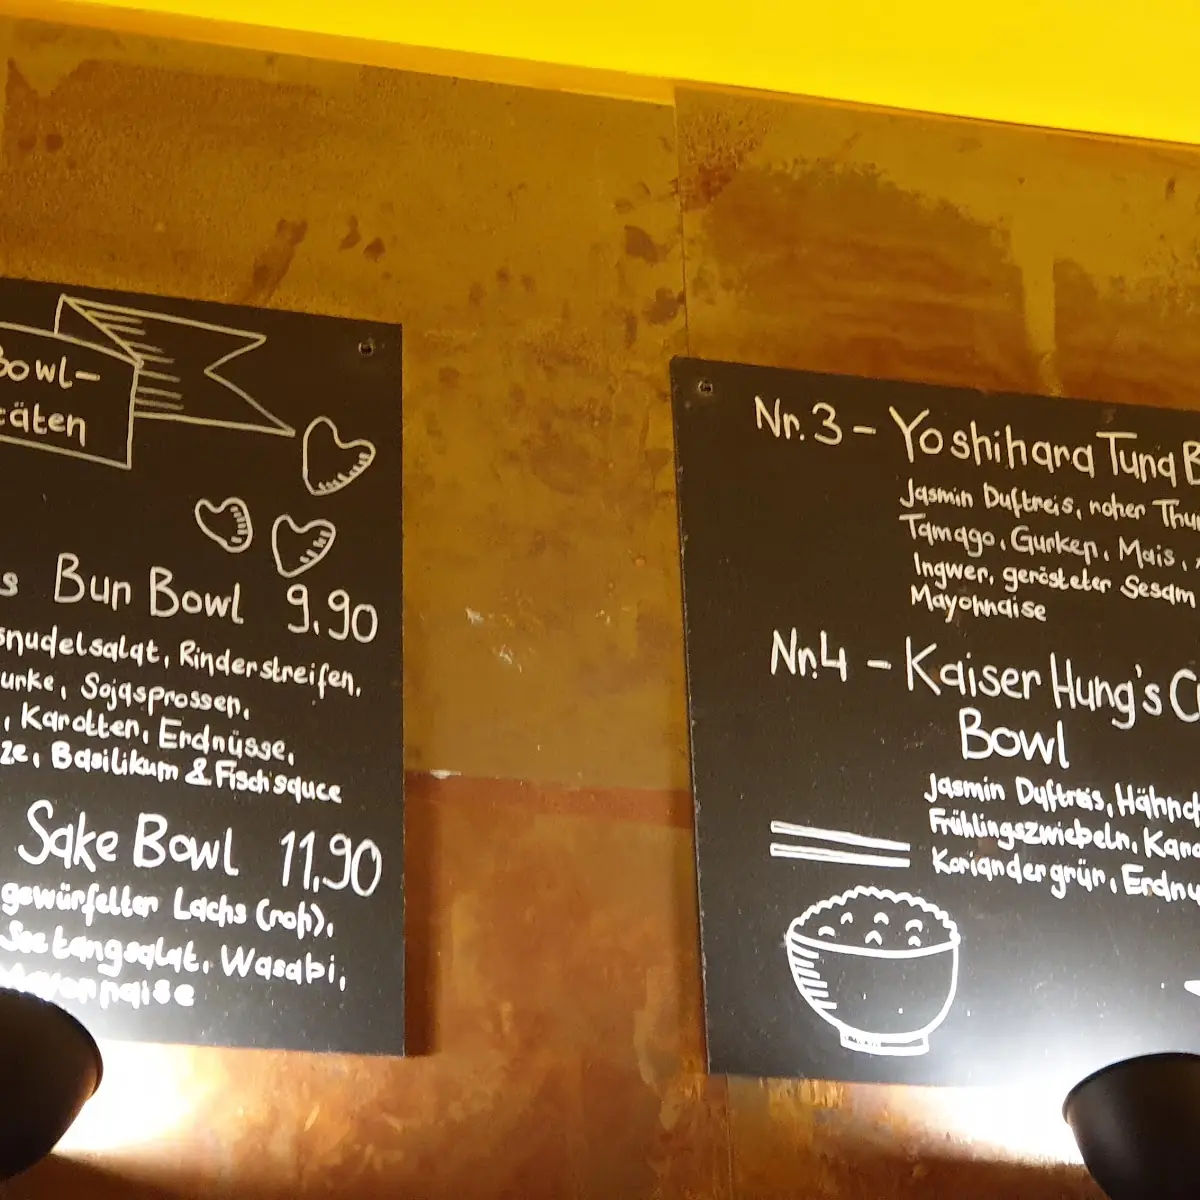 Bowl-
täten
s Bun Bowl 9,90
snudelsalat, Rinderstreifen,
urke, Sojasprossen,
, Karotten, Erdnüsse,
ze, Basilikum & Fischsauce
Sake Bowl 11,90
gewürfelter Lachs (roh),
Seetangsalat, Wasabi,
Mayonnaise
Nr. 3 - Yoshihara Tuna B
Jasmin Duftreis, roher Thu
Tamago, Gurken, Mais,
Ingwer, gerösteter Sesam
Mayonnaise
Nr.4 - Kaiser Hung's C
Bowl
Jasmin Duftreis, Hähnch
Frühlingszwiebeln, Karo
Koriandergrün, Erdnü